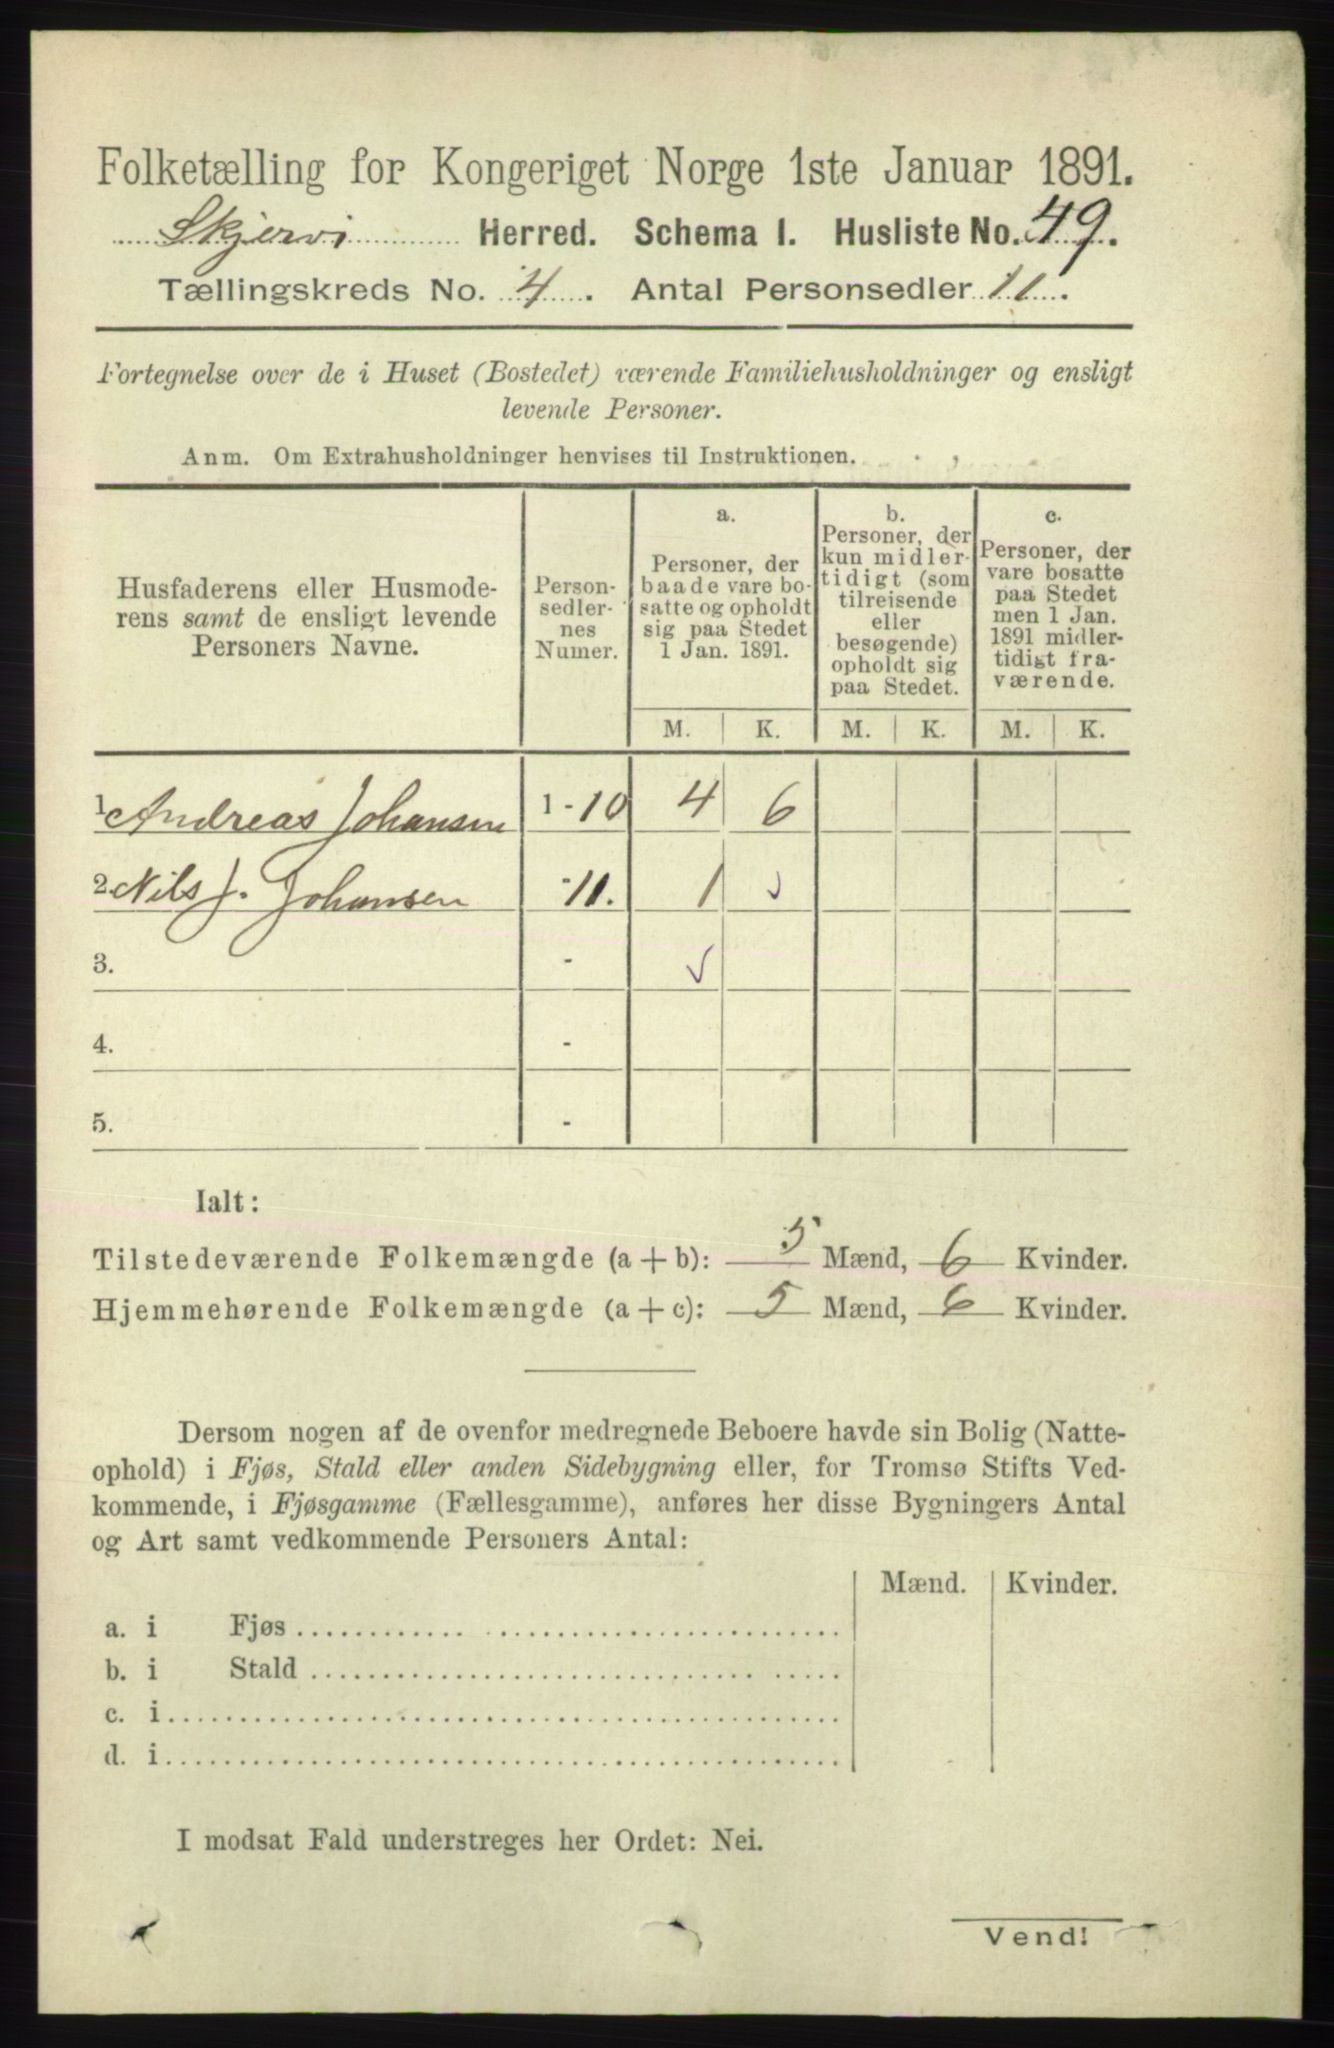 Folketælling for Kongeriget Norge 1ste Januar 1891.
Skjervø Herred. Schema I. Husliste No. 49.
Tællingskreds No. 4. Antal Personsedler 11.
Fortegnelse over de i Huset (Bostedet) værende Familiehusholdninger og ensligt
levende Personer.
Anm. Om Extrahusholdninger henvises til Instruktionen.
Husfaderens eller Husmode-
rens samt de ensligt levende
Personers Navne.
Person-
sedler-
nes
Numer.
a.
Personer, der
baade vare bo-
satte og opholdt
sig paa Stedet
1 Jan. 1891.
b.
Personer, der
kun midler-
tidigt (som
tilreisende
eller
besøgende)
opholdt sig
paa Stedet.
c.
Personer, der
vare bosatte
paa Stedet
men 1 Jan.
1891 midler-
tidigt fra-
værende.
M. K. M. K. M. K.
1. Andreas Johansen 1-10 4 6
2. Nils J. Johansen -11. 1 ✓
3. - ✓
4. -
5. -
Ialt:
Tilstedeværende Folkemængde (a + b): 5 Mænd, 6 Kvinder.
Hjemmehørende Folkemængde (a + c): 5 Mænd, 6 Kvinder.
Dersom nogen af de ovenfor medregnede Beboere havde sin Bolig (Natte-
ophold) i Fjøs, Stald eller anden Sidebygning eller, for Tromsø Stifts Ved-
kommende, i Fjøsgamme (Fællesgamme), anføres her disse Bygningers Antal
og Art samt vedkommende Personers Antal:
Mænd. Kvinder.
a. i Fjøs
b. i Stald
c. i
d. i
I modsat Fald understreges her Ordet: Nei.
Vend!